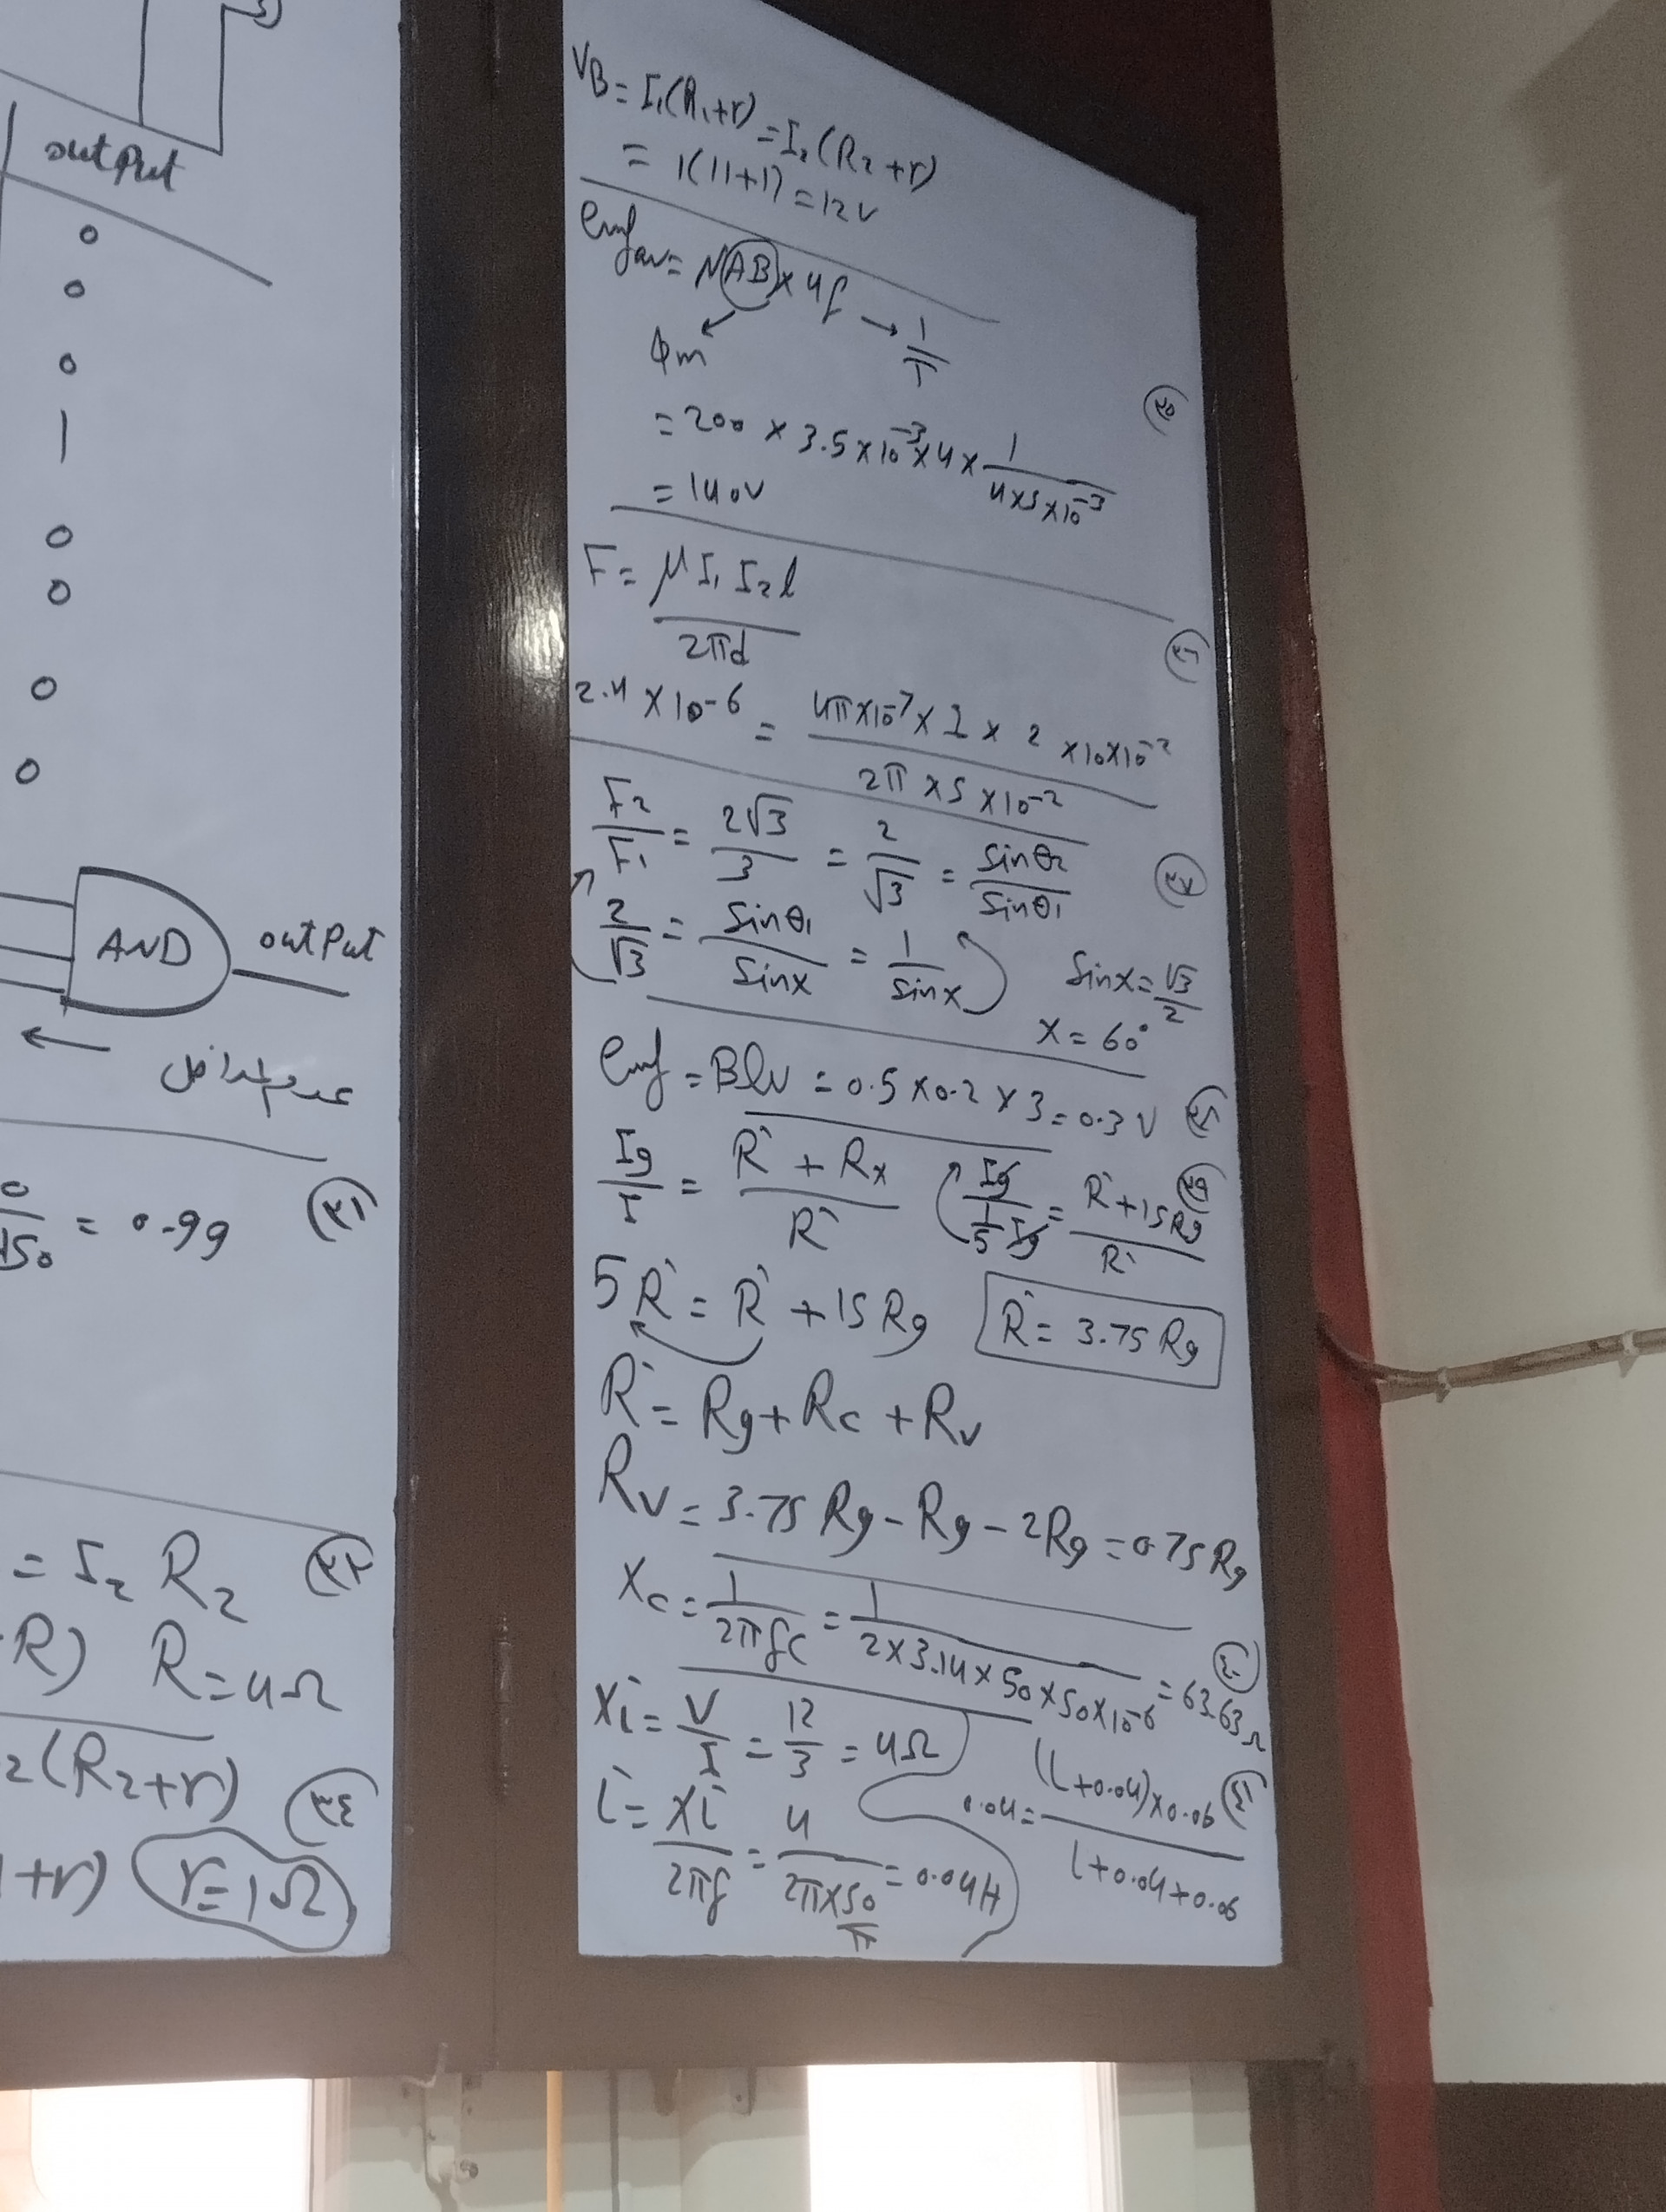 output
0
0
0
1
0
0
0
0
AND output
عدم التداخل
= 0.99 (٤٢)
= I₂ R₂
R) R = 4Ω
2(R₂+r) (٤٤)
+r) r = 1Ω
VB = I₁(R₁+r) = I₂(R₂+r)
= 1(11+1) = 12V
emf av = NAB × 4f → 1/T
Φm
= 200 × 3.5×10⁻³ × 4 × 1/(4×5×10⁻³) (٤٥)
= 140V
F = μ I₁ I₂ l / 2πd (٤٦)
2.4 × 10⁻⁶ = 4π×10⁻⁷ × I × 2 × 10×10⁻² / 2π × 5 × 10⁻²
F₂/F₁ = 2√3/3 = 2/√3 = Sinθ₂/Sinθ₁ (٤٧)
2/√3 = Sinθ₁/Sinx = 1/Sinx Sinx = √3/2
x = 60°
emf = Blv = 0.5 × 0.2 × 3 = 0.3 V (٤٨)
Ig/I = R` + Rx / R` Ig / ⅕Ig = R` + 15Rg / R` (٤٩)
5R` = R` + 15 Rg R` = 3.75 Rg
R` = Rg + Rc + Rv
Rv = 3.75 Rg - Rg - 2Rg = 0.75 Rg
Xc = 1/2πfc = 1/(2×3.14×50×50×10⁻⁶) = 63.63Ω (٥٠)
XL` = V/I = 12/3 = 4Ω
L` = XL`/2πf = 4/(2π×50/π) = 0.04H
0.04 = (L+0.04)×0.06 / L+0.04+0.06 (٥١)